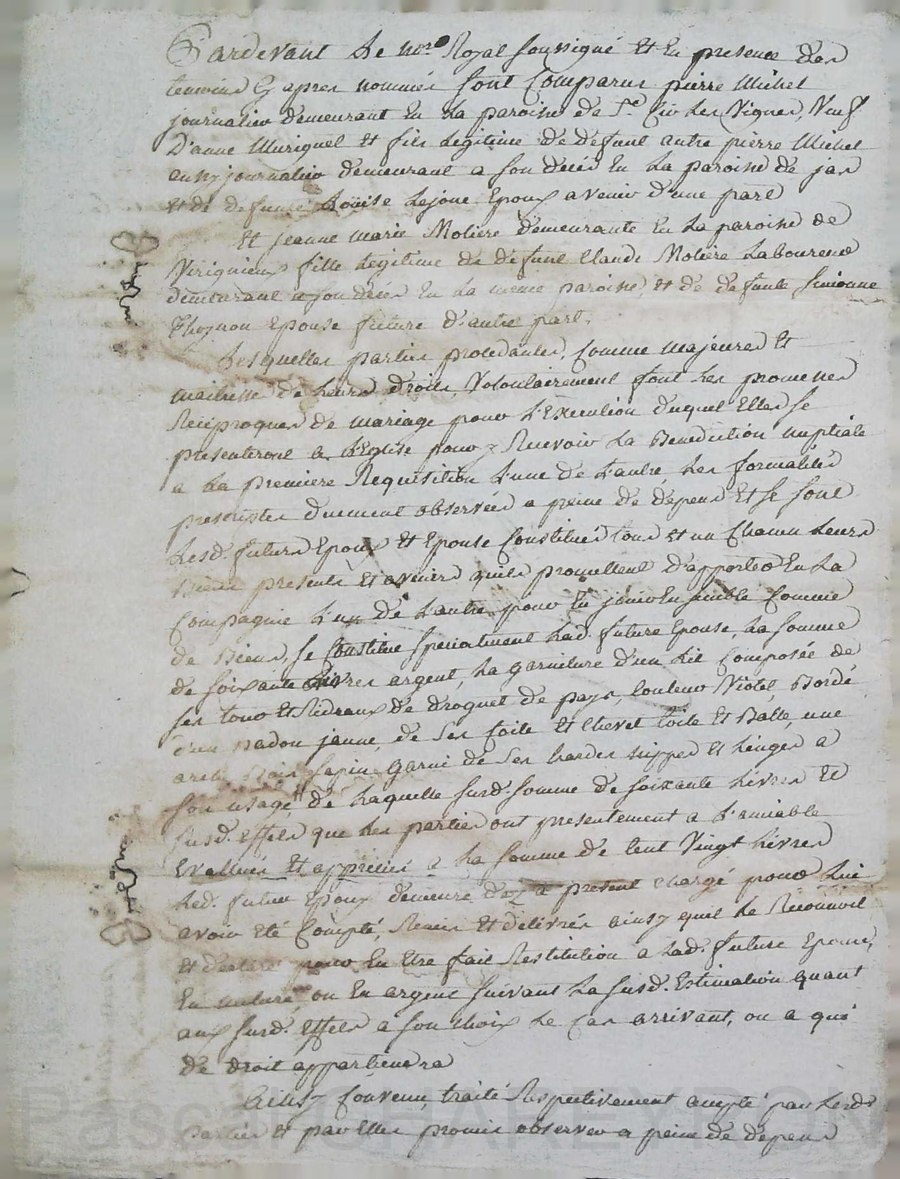 Pardevant Le nore Royal soussigné Et En presence des
temoins Cy apres nommés sont Comparus pierre Michel
journalier demeurant En La paroisse de St Cir Les Vignes, Veuf
D'anne Muriguel et fils Legitime de deffunt autre pierre Michel
aussy journalier demeurant a son décès En La paroisse de jas
et de deffunte Louise Lejone Epoux avenir d'une part
Et jeanne marie Moliere demeurante En La paroisse de
Virignieux fille Legitime de deffunt Claude Moliere Laboureur
demeurant a son décès En La meme paroisse, et de deffunte Simonne
Thoynon Epouse future d'autre part.
Lesquelles parties procedantes, Comme majeures Et
maitresse de Leurs droits, Volontairement font Les promesses
Reciproques de mariage pour L'Execution duquel Elles se
presenteront a L'Eglise pour y Recevoir La Benediction nuptiale
a La premiere Requisition L'une de L'autre Les formalités
prescrites duement observées a peine de dépens Et se sont
Lesd. futurs Epoux Et Epouse Constitués tous et un Chacun Leurs
Biens presents Et avenirs quils promettent d'apporter En La
Compagnie L'un de L'autre pour En jouir Ensemble Comme
de Biens, se Constitue specialement Lad. future Epouse, La somme
de soixante Livres argent, La garniture d'un Lit Composée de
ses tour Et Rideaux de droguet de pays, Couleur Violet, Bordé
d'un padou jaune, de Ses Coite Et Chevet toile Et Balle, une
arche Bois sapin garni de Ses hardes nippes Et Linges a
son usage, de Laquelle susd. somme de soixante Livres Et
susd. Effets que Les parties ont presentement a L'amiable
Evallués Et appreciés a La somme de Cent Vingt Livres
Led. futur Epoux demeure dez a present Chargé pour Lui
avoir été Compté, Remis Et délivrés ainsy quil Le Reconnoit
Et déclare pour En Etre fait Restitution a Lad. future Epouse,
En nature, ou En argent suivant La susd. Estimation quant
aux susd. Effets a son choix Le Cas arrivant, ou a qui
de droit appartiendra
Ainsy Convenu, traité Respectivement accepté par Lesds
parties Et par Elles promis observer a peine de dépens